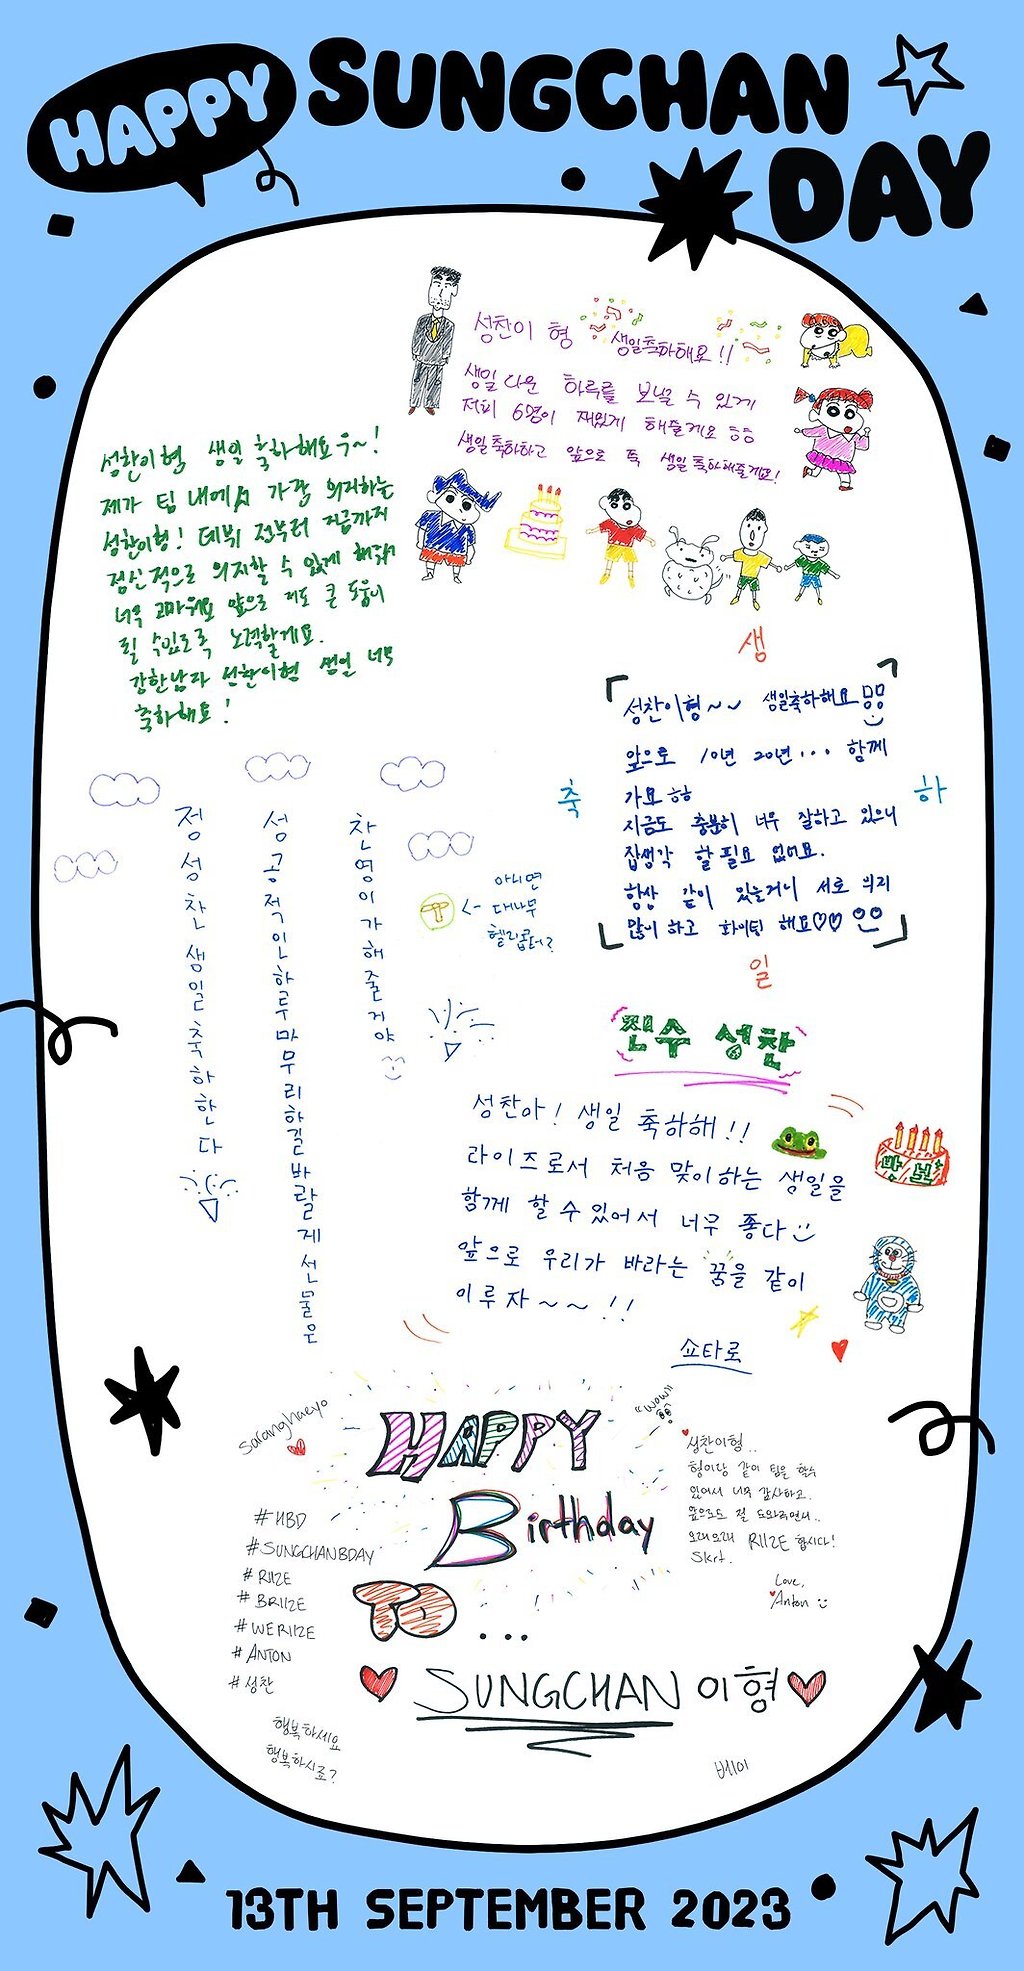 HAPPY SUNGCHAN
DAY
성찬이 형 생일축하해요!!
생일다운 하루를 보낼 수 있게
저희 6명이 재밌게 해줄게요 ㅎㅎ
생일축하하고 앞으로 쭉 생일축하해줄게요!
성찬이형 생일 축하해요우~!
제가 팀 내에서 가장 의지하는
성찬이형! 데뷔 전부터 지금까지
정신적으로 의지할 수 있게 해줘서
너무 고마워요 앞으로 저도 큰 도움이
될 수있도록 노력할게요.
강한남자 성찬이형 생일 너무
축하해요!
생
축
하
일
성찬이형~~ 생일축하해요
앞으로 10년 20년... 함께
가요 ㅎㅎ
지금도 충분히 너무 잘하고 있으니
잡생각 할 필요 없어요.
항상 같이 있을거니 서로 의지
많이 하고 화이팅 해요♡♡
정성찬생일축하한다
성공적인하루마무리하길바랄게선물은
찬영이가해줄거야
<- 아니면
대나무
헬리콥터?
진수 성찬
성찬아! 생일 축하해!!
라이즈로서 처음 맞이하는 생일을
함께 할 수 있어서 너무 좋다
앞으로 우리가 바라는 꿈을 같이
이루자~~!!
쇼타로
바보
saranghaeyo
HAPPY
Birthday
TO...
SUNGCHAN 이형
"wow"
#HBD
#SUNGCHANBDAY
#RIIZE
#BRIIZE
#WERIIZE
#ANTON
#성찬
행복하세요
행복하시죠?
성찬이형..
형이랑 같이 팀을 할수
있어서 너무 감사하고.
앞으로도 잘 도와주면서..
오래오래 RIIZE 합시다!
Skrt.
Love,
Anton
13TH SEPTEMBER 2023